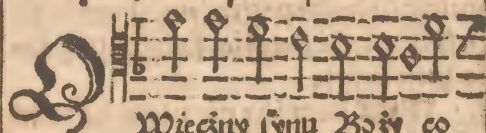 O
Wiecżny ſynu Boży co